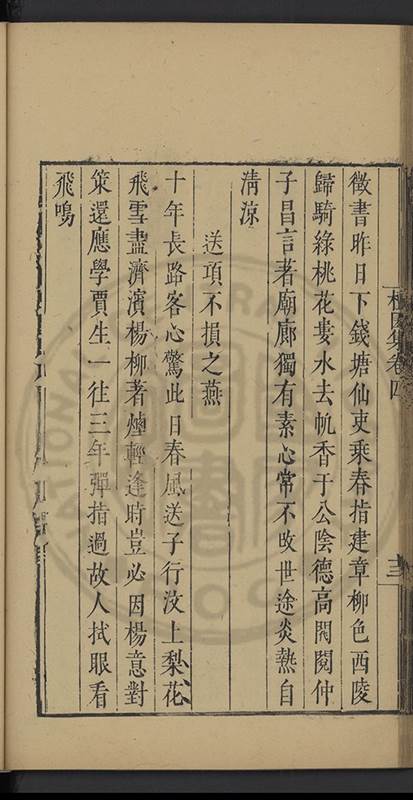 徵書昨日下錢塘仙吏乘春指建章柳色西陵
歸騎綠桃花婁水去帆香于公陰德高閥閱仲
子昌言著廟廊獨有素心常不改世途炎熱自
清涼
送項不損之燕
十年長路客心驚此日春風送子行汶上梨花
飛雪盡濟濱楊柳著烟輕逢時豈必因楊意對
策還應學賈生一往三年彈指過故人拭眼看
飛鳴